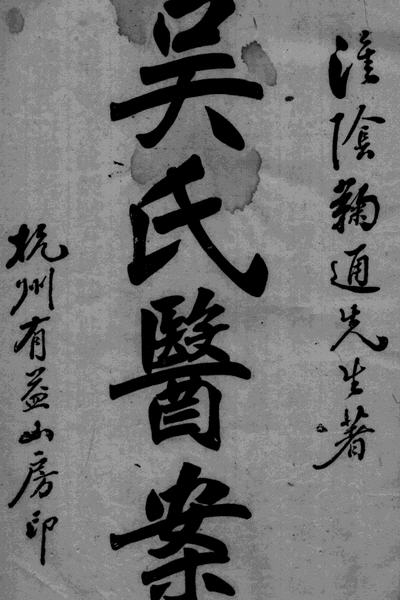 淮陰鞠通先生著
吳氏醫案
杭州有益山房印